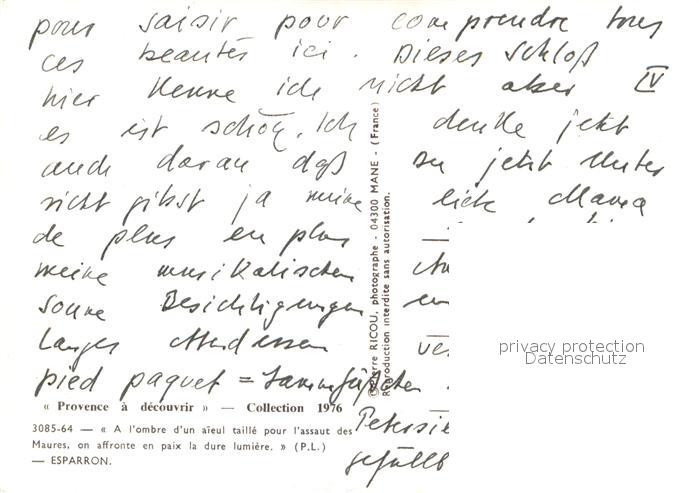 pour saisir pour comprendre tous
ces beautés ici. Dieses Schloß
hier kenne ich nicht aber IV
es ist schön. Ich denke jetzt
auch daran daß du jetzt Unter
richt gibst ja meine liebe Mama
de plus en plus
meine musikalischen
sowie Besichtigungen en
langes Abendessen ver
pied paquet = Lammfüßchen
Petersi
gefüllt
© Pierre RICOU, photographe - 04300 MANE - (France)
Reproduction interdite sans autorisation.
privacy protection
Datenschutz
« Provence à découvrir » — Collection 1976
3085-64 — « A l'ombre d'un aïeul taillé pour l'assaut des
Maures, on affronte en paix la dure lumière. » (P.L.)
— ESPARRON.